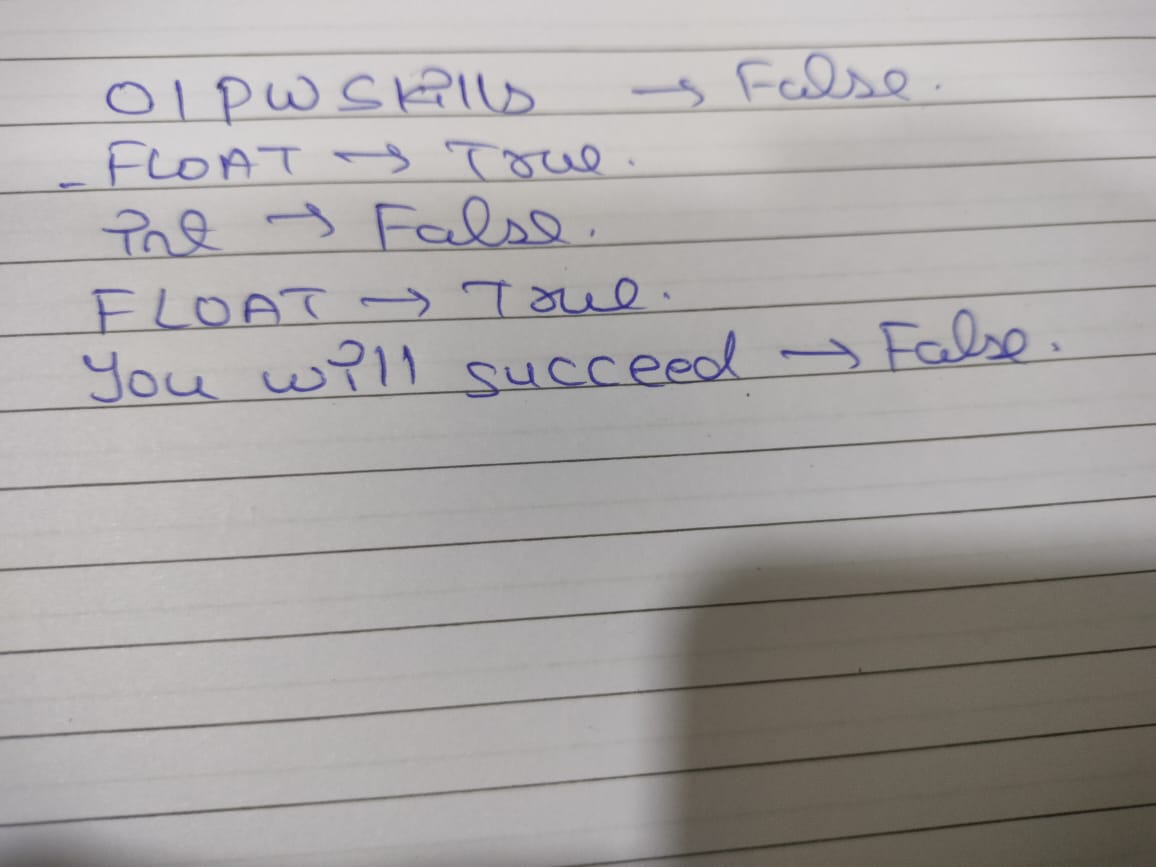 01 PW Skills → False.
_FLOAT → True.
int → False.
FLOAT → True.
You will succeed → False.